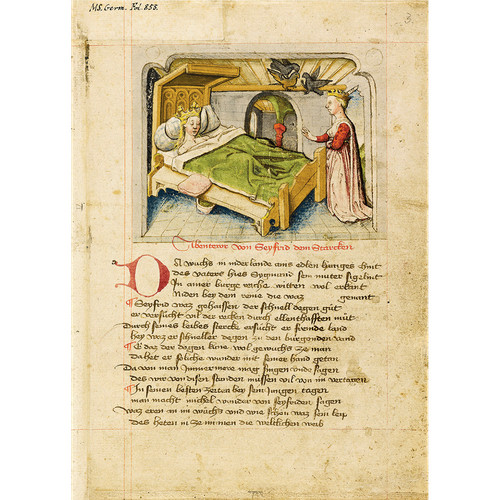 MS. Germ. Fol. 855.
3
Abentewr von Seyfrid dem Starcken
Da wuchs in niderlande ains edlen kunges kint
des vaters hies Sygmund sein muter sigelint
In ainer burge reiche witten wol erkant
Niden bey dem reine die waz genant
Seyfrid waz gehaissen der schnell degen gut
er versucht vil der recken durch ellenthafften mut
Durch seines leibes stercke ersucht er fremde land
hey waz er schneller degen zu den burgenden vand
E daz der degen küne wol gewuchs ze man
Da het er soliche wunder mit seiner hand getan
Da von man immermere mag singen sagen
des wir von disen stunden müssen vil von im vertagen
In seinen besten zeiten bey sein jungen tagen
man mocht michel wunder von seyfriden sagen
waz eren an im wüchs und wie schön waz sein leip
des heten in die weltlichen weib